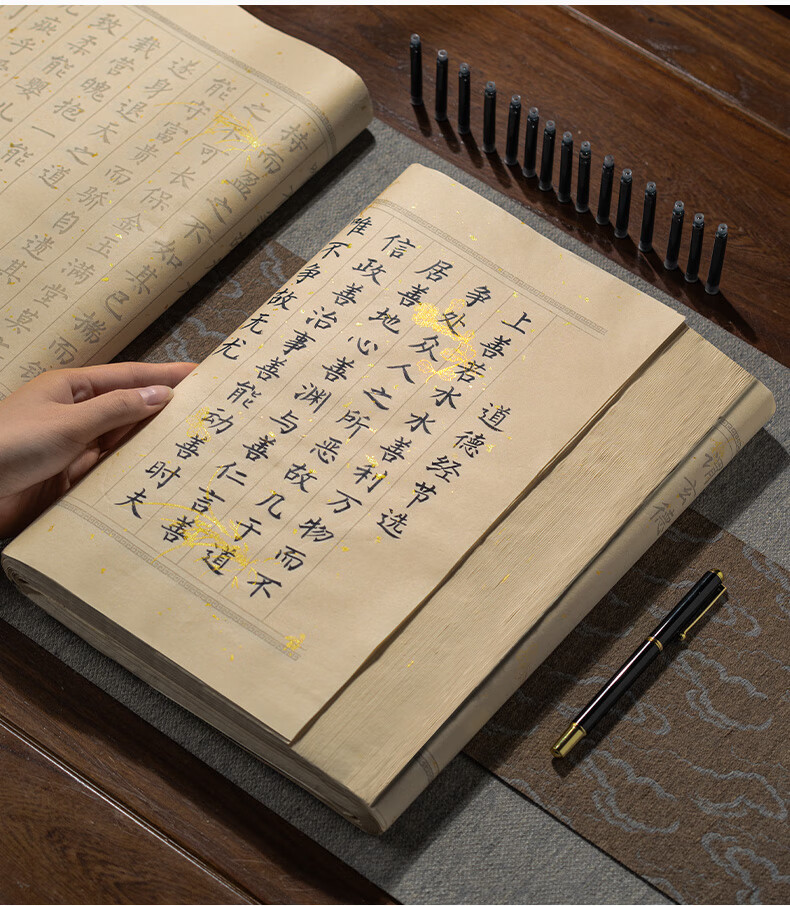 道德经节选
上善若水水善利万物而不
争处众人之所恶故几于道
居善地心善渊与善仁言善
信政善治事善能动善时夫
唯不争故无尤
持而盈之不如其已揣而锐
之不可长保金玉满堂莫
能守富贵而骄自遗其
遂身退天之道
载营魄抱一能
致柔能婴儿
疵乎
谓玄德